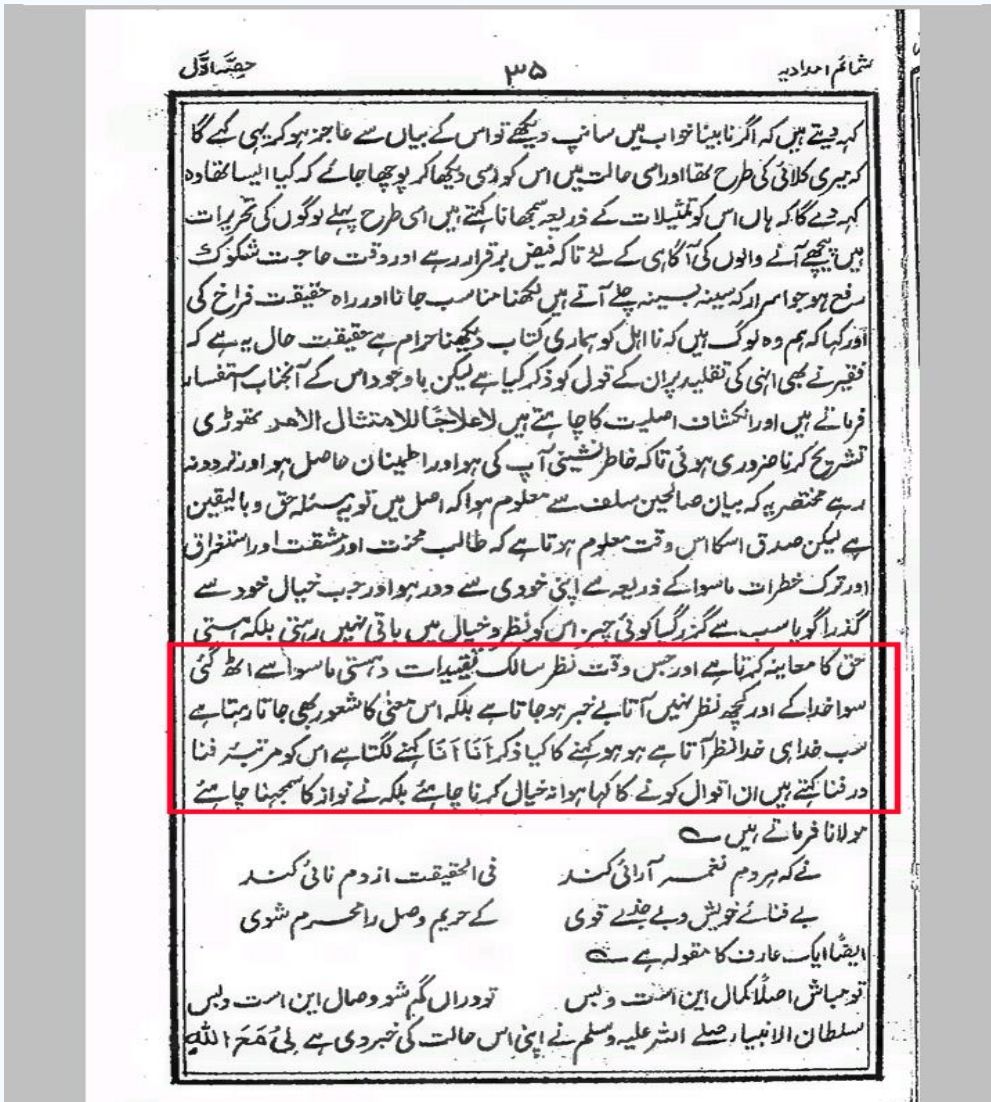 شمائم امدادیہ ۳۵ حصہ اول
کہہ دیتے ہیں کہ اگر نابینا خواب میں سانپ دیکھے تو اس کے بیاں سے عاجز ہو کر یہی کہے گا
کہ میری کلائی کی طرح تھا اور اسی حالت میں اس کو رسی دیکھا کر پوچھا جائے کہ کیا ایسا تھا وہ
کہہ دے گا کہ ہاں اس کو تمثیلات کے ذریعہ سمجھانا کہتے ہیں اسی طرح پہلے لوگوں کی تحریرات
ہیں پیچھے آنے والوں کی آگاہی کے لئے تاکہ فیض برقرار رہے اور وقت حاجت شکوک
رفع ہو جو اسرار کہ سینہ بسینہ چلے آتے ہیں لکھنا مناسب جانا اور راہ حقیقت فراخ کی
اور کہا کہ ہم وہ لوگ ہیں کہ نا اہل کو ہماری کتاب دیکھنا حرام ہے حقیقت حال یہ ہے کہ
فقیر نے بھی انہی کی تقلید پر ان کے قول کو ذکر کیا ہے لیکن باوجود اس کے آنجناب استفسار
فرماتے ہیں اور انکشاف اصلیت کا چاہتے ہیں لاعلاجًا للامتثال الامر تھوڑی
تشریح کرنا ضروری ہوئی تاکہ خاطر نشینی آپ کی ہو اور اطمینان حاصل ہو اور تردد نہ
رہے مختصر یہ کہ بیان صالحین سلف سے معلوم ہوا کہ اصل میں تو یہ مسئلہ حق و بالیقین
ہے لیکن صدق اسکا اس وقت معلوم ہوتا ہے کہ طالب محنت اور مشقت اور استغراق
اور ترک خطرات ماسوا کے ذریعہ سے اپنی خودی سے دور ہو اور جب خیال خود سے
گذرا گویا سب سے گزر گیا کوئی چیز اس کو نظر و خیال میں باقی نہیں رہتی بلکہ ہستی
حق کا معاینہ کرتا ہے اور جس وقت نظر سالک تقیدات و ہستی ماسوا سے اٹھ گئی
سوا خدا کے اور کچھ نظر نہیں آتا بے خبر ہو جاتا ہے بلکہ اس معنی کا شعور بھی جاتا رہتا ہے
سب خدا ہی خدا نظر آتا ہے ہو ہو کہنے کا کیا ذکر اَنَا اَنَا کہنے لگتا ہے اس کو مرتبہ فنا
در فنا کہتے ہیں ان اقوال کو نے کا کہا ہوا نہ خیال کرنا چاہئے بلکہ نے نواز کا سمجہنا چاہئے
مولانا فرماتے ہیں ؎
نے کہ ہر دم نغمہ آرائی کند فی الحقیقت از دم نائی کند
بے فنائے خویش و بے جذبے قوی کے حریم وصل را محرم شوی
ایضًا ایک عارف کا مقولہ ہے ؎
تو مباش اصلًا کمال این است و بس تو دراں گم شو وصال این است و بس
سلطان الانبیاء صلے اللہ علیہ وسلم نے اپنی اس حالت کی خبر دی ہے لِیْ مَعَ اللهِ